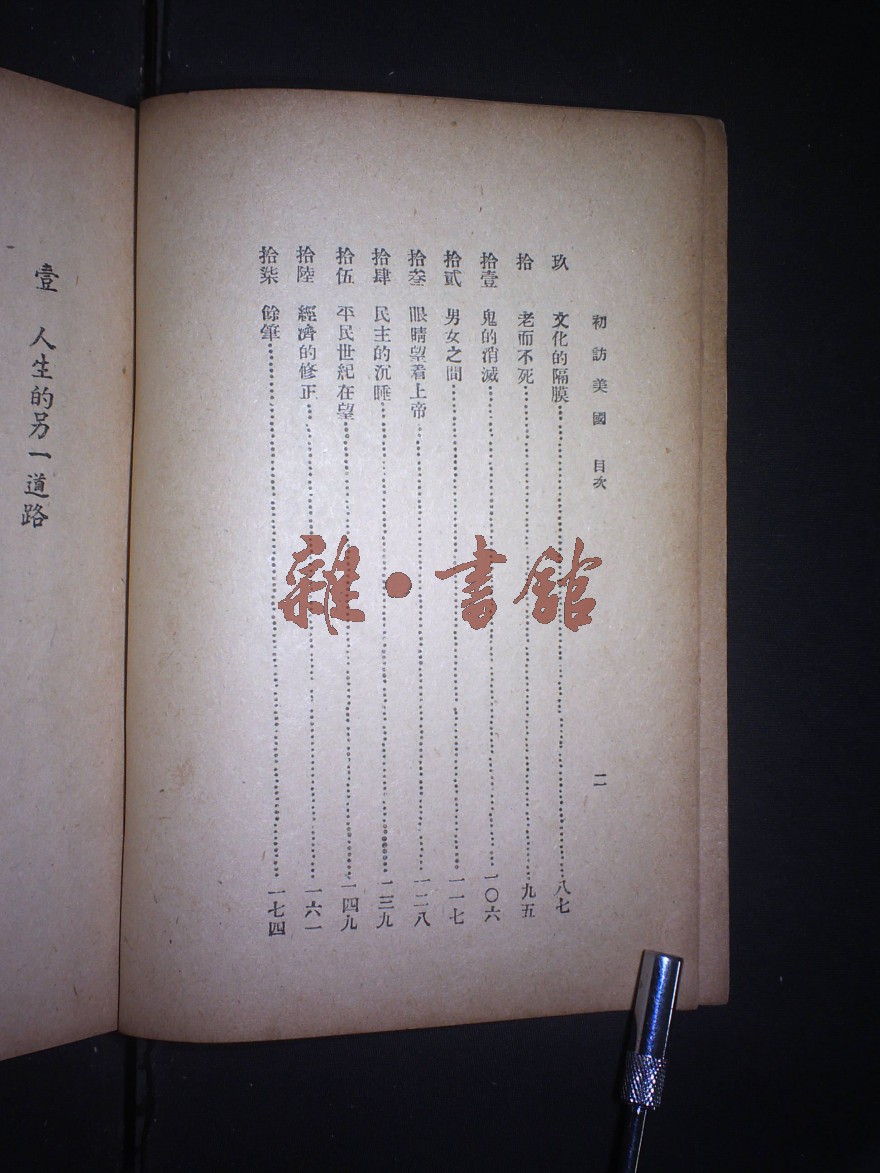 初訪美國 目次 二
玖 文化的隔膜 八七
拾 老而不死 九五
拾壹 鬼的消滅 一〇六
拾貳 男女之間 一一七
拾叁 眼睛望着上帝 一二八
拾肆 民主的沉睡 一三九
拾伍 平民世紀在望 一四九
拾陸 經濟的修正 一六一
拾柒 餘筆 一七四
壹 人生的另一道路
雜•書館